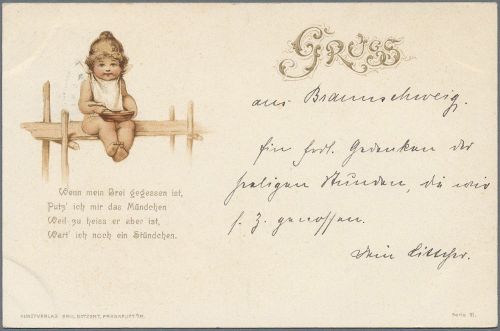 Gruss
aus Braunschweig.
Ein frdl. Gedenken der
seeligen Stunden, die wir
s. Z. genossen.
Dein
Wenn mein Brei gegessen ist,
Putz' ich mir das Mündchen
Weil zu heiss er aber ist,
Wart' ich noch ein Stündchen.
KUNSTVERLAG EMIL DOTZERT, FRANKFURT a/M.
Serie VI.